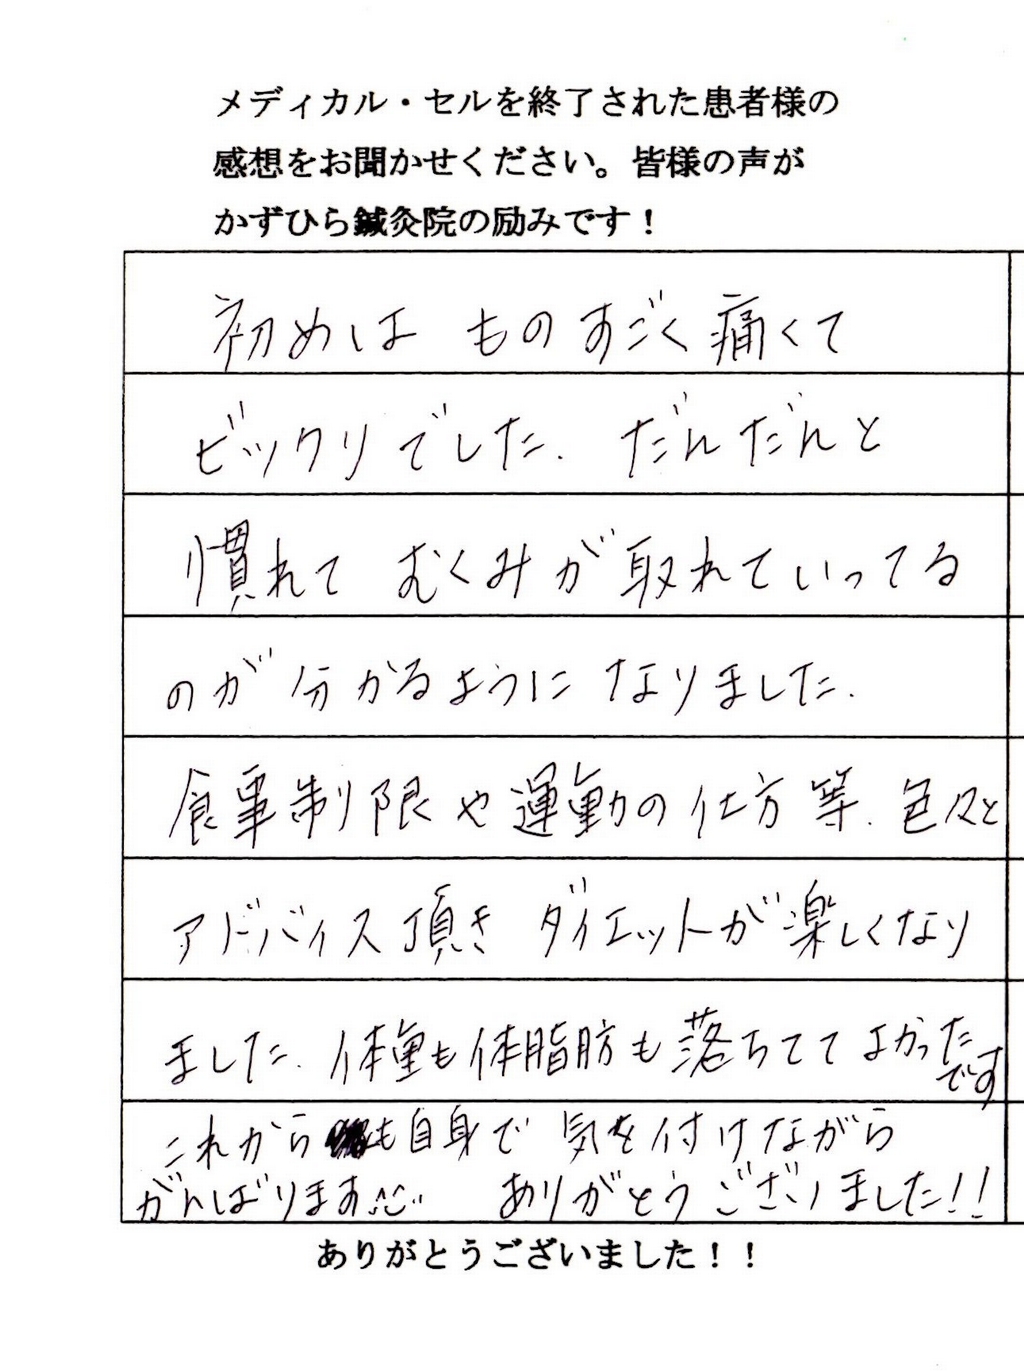 メディカル・セルを終了された患者様の
感想をお聞かせください。皆様の声が
かずひら鍼灸院の励みです！
初めは ものすごく痛くて
ビックリでした. だんだんと
慣れて むくみが取れていってる
のが分かるように なりました.
食事制限や運動の仕方等. 色々と
アドバイス頂き ダイエットが楽しくなり
ました. 体重も体脂肪も落ちててよかった
です
これからも自身で 気を付けながら
がんばります ありがとうございました!!
ありがとうございました！！